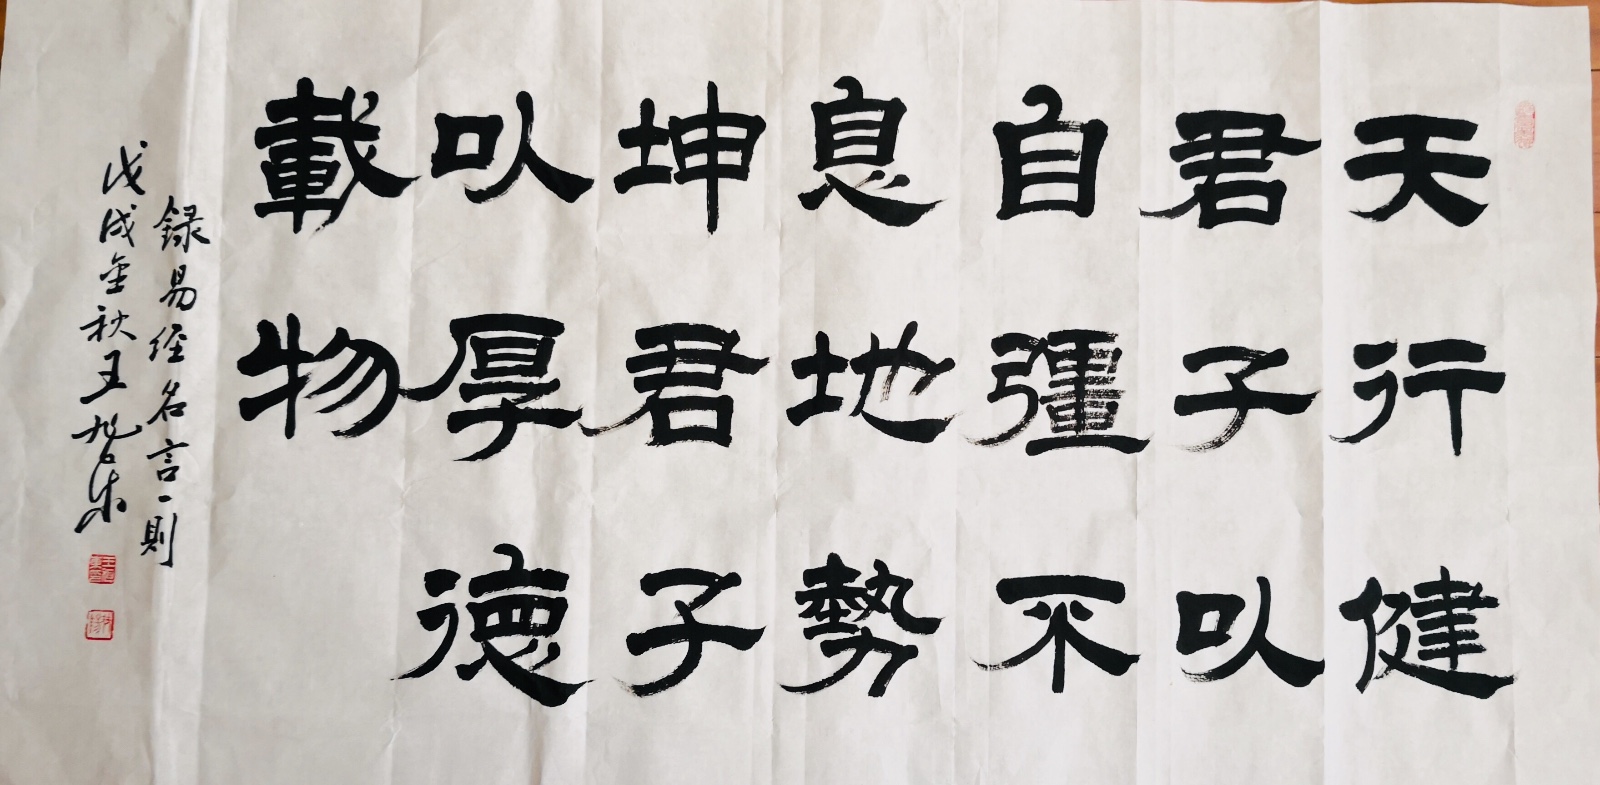 天行健
君子以
自彊不
息地勢
坤君子
以厚德
載物
録易经名言一則
戊戌金秋王旭东